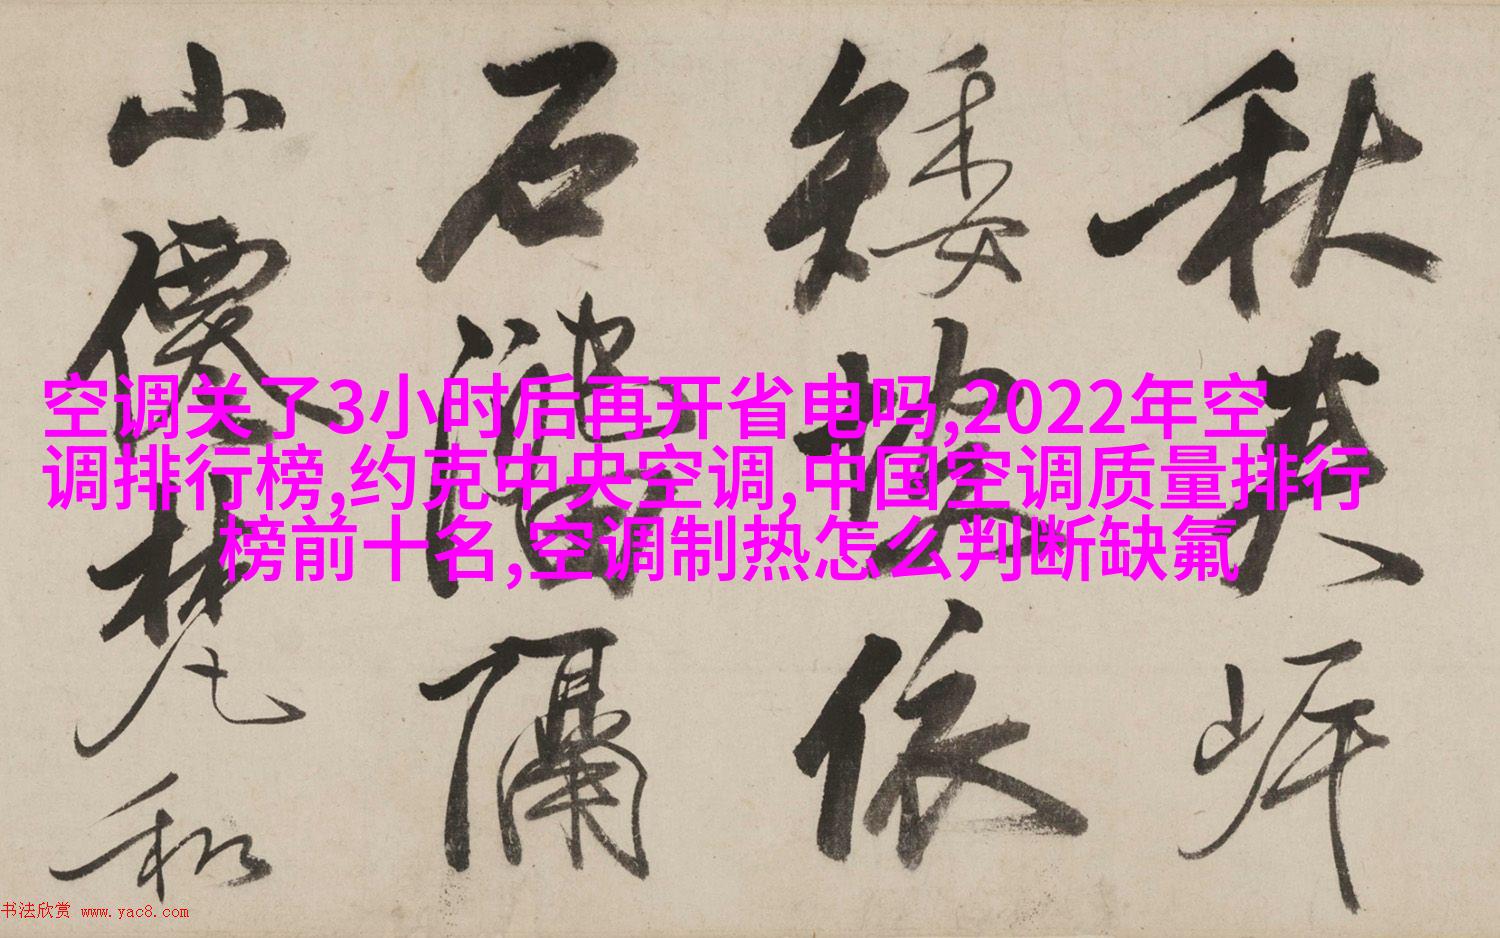 空调关了3小时后再开省电吗,2022年空
调排行榜,约克中央空调,中国空调质量排行
榜前十名,空调制热怎么判断缺氟
秋
矮
依
石
隔
山
僊
梵
和
书法欣赏 www.yac8.com